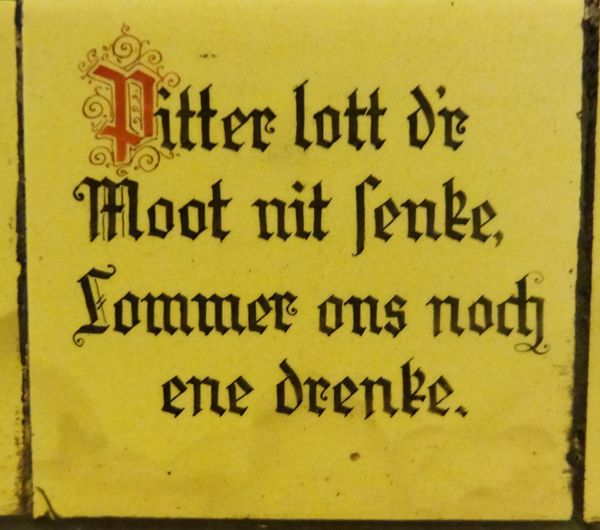 Pitter lott d'r
Moot nit senke,
Lommer ons noch
ene drenke.